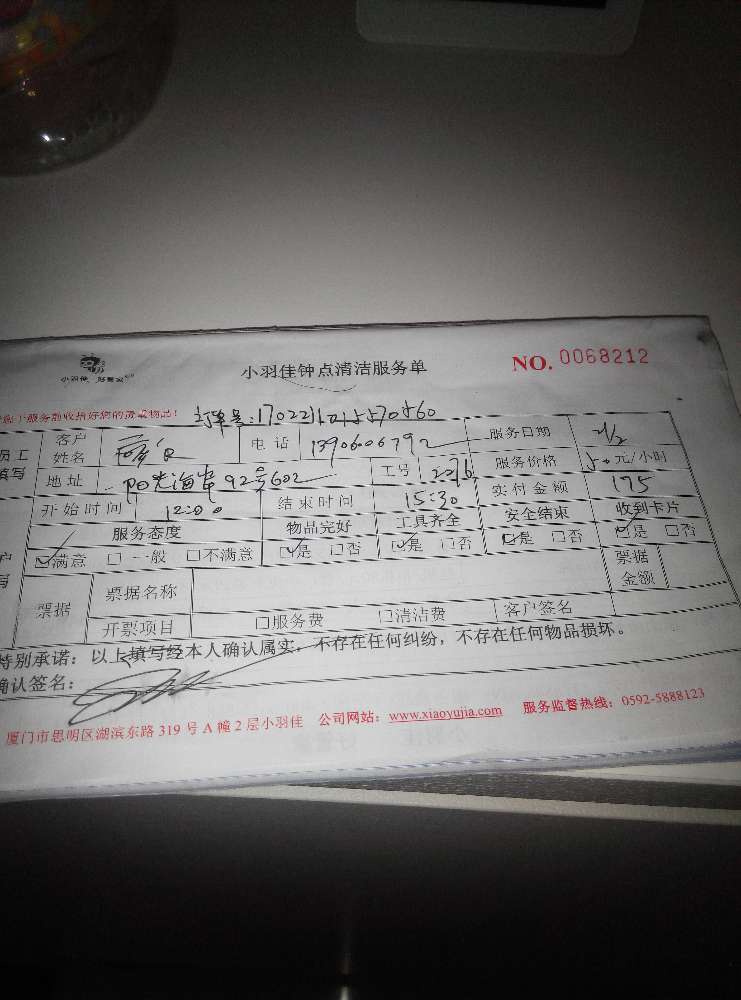 小羽佳 好慧家
小羽佳钟点清洁服务单
NO. 0068212
服务前收拾好您的贵重物品！
订单号：
员工填写 客户姓名 电话 服务日期
地址 阳光海岸92号602 工号 服务价格 50元/小时
开始时间 12:00 结束时间 15:30 实付金额 175
服务态度 物品完好 工具齐全 安全结束 收到卡片
☑满意 □一般 □不满意 ☑是 □否 ☑是 □否 ☑是 □否 ☑是 □否
票据 票据名称 票据金额
开票项目 □服务费 □清洁费 客户签名
特别承诺：以上填写经本人确认属实，不存在任何纠纷，不存在任何物品损坏。
确认签名：
厦门市思明区湖滨东路319号A幢2层小羽佳 公司网站：www.xiaoyujia.com 服务监督热线：0592-5888123